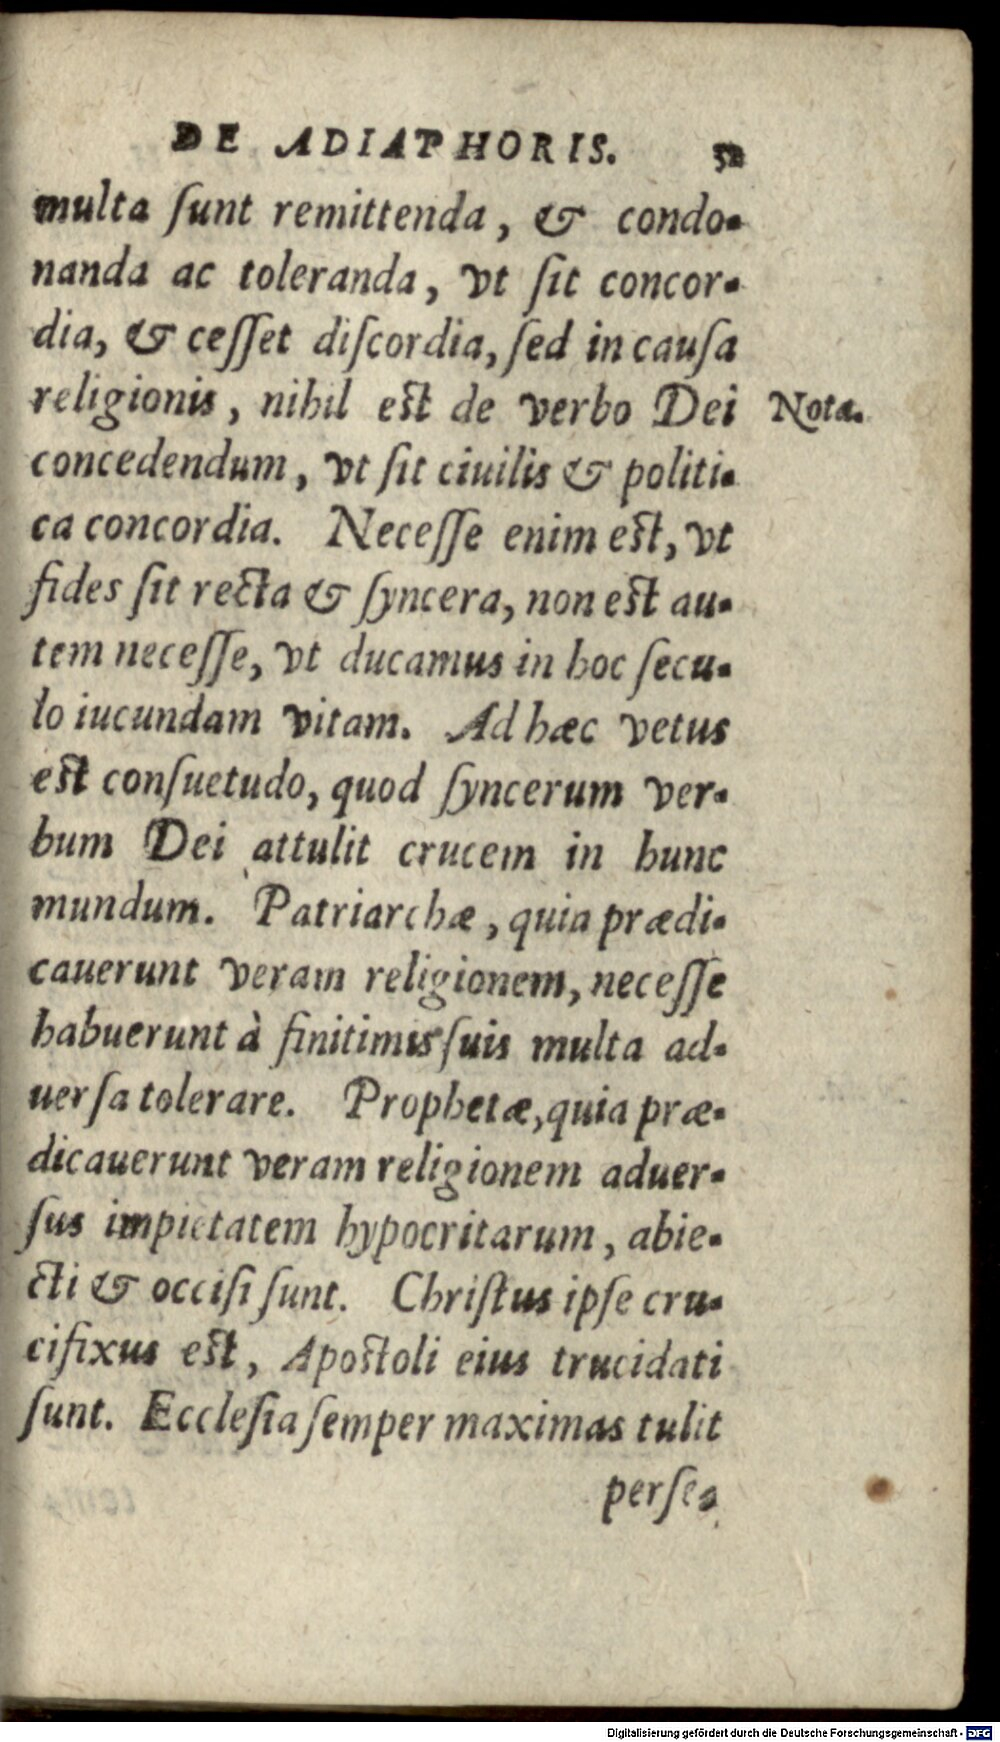 DE ADIAPHORIS. 52
multa ſunt remittenda, & condo-
nanda ac toleranda, vt ſit concor-
dia, & ceſſet diſcordia, ſed in cauſa
religionis, nihil est de verbo Dei
Nota.
concedendum, vt ſit ciuilis & politi-
ca concordia. Neceſſe enim est, vt
fides ſit recta & ſyncera, non est au-
tem neceſſe, vt ducamus in hoc ſecu-
lo iucundam vitam. Ad hæc vetus
est conſuetudo, quod ſyncerum ver-
bum Dei attulit crucem in hunc
mundum. Patriarchæ, quia prædi-
cauerunt veram religionem, neceſſe
habuerunt à finitimis ſuis multa ad-
uerſa tolerare. Prophetæ, quia præ-
dicauerunt veram religionem aduer-
ſus impietatem hypocritarum, abie-
cti & occiſi ſunt. Chriſtus ipſe cru-
cifixus est, Apostoli eius trucidati
ſunt. Eccleſia ſemper maximas tulit
perſe-
Digitalisierung gefördert durch die Deutsche Forschungsgemeinschaft - DFG